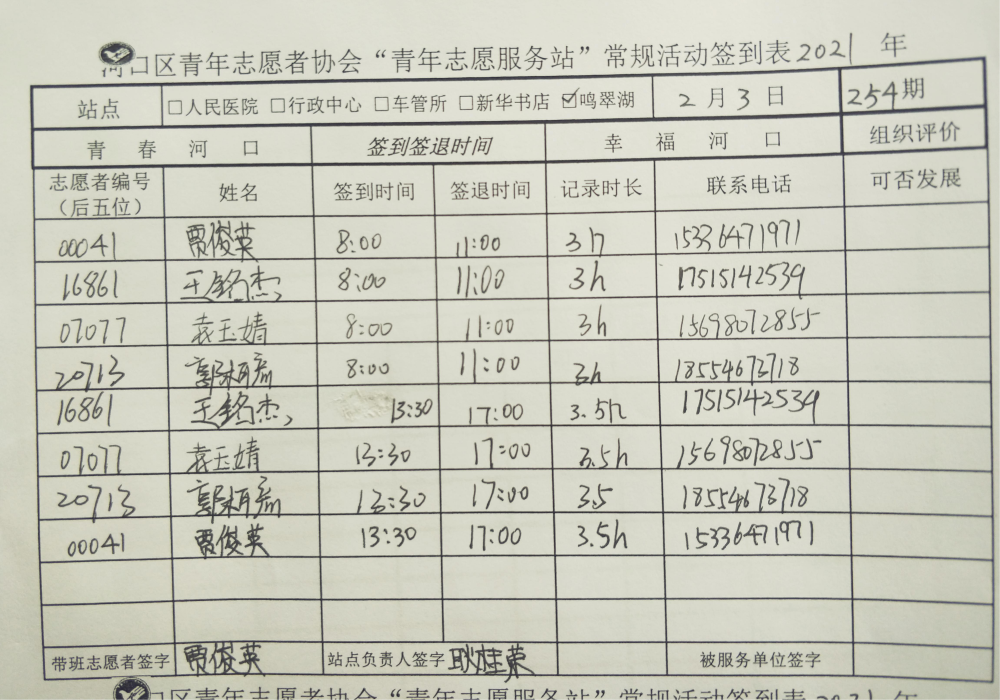 河口区青年志愿者协会“青年志愿服务站”常规活动签到表2021 年
站点 □人民医院 □行政中心 □车管所 □新华书店 ☑鸣翠湖 2 月 3 日 254期
青 春 河 口 签到签退时间 幸 福 河 口 组织评价
志愿者编号（后五位） 姓名 签到时间 签退时间 记录时长 联系电话 可否发展
00041 贾俊英 8:00 11:00 3h 15336471971
16861 王铭杰 8:00 11:00 3h 17515142539
07077 袁玉婧 8:00 11:00 3h 15698072855
20713 郭柏 8:00 11:00 3h 18554673718
16861 王铭杰 13:30 17:00 3.5h 17515142539
07077 袁玉婧 13:30 17:00 3.5h 15698072855
20713 郭柏 13:30 17:00 3.5 18554673718
00041 贾俊英 13:30 17:00 3.5h 15336471971
带班志愿者签字 贾俊英 站点负责人签字 耿桂荣 被服务单位签字
口区青年志愿者协会“青年志愿服务站”常规活动签到表2021 年